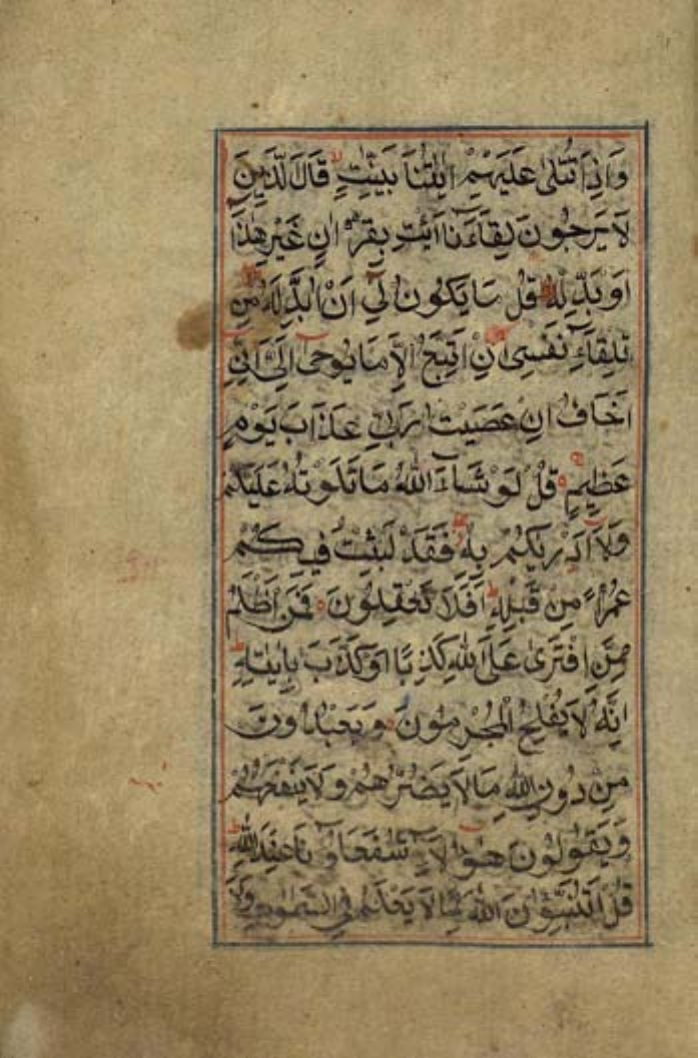 وَاِذَا تُتْلٰى عَلَيْهِمْ اٰيٰتُنَا بَيِّنٰتٍ قَالَ الَّذِينَ
لَا يَرْجُونَ لِقَاءَنَا ائْتِ بِقُرْاٰنٍ غَيْرِ هٰذَا
اَوْ بَدِّلْهُ قُلْ مَا يَكُونُ لِي اَنْ اُبَدِّلَهُ مِنْ
تِلْقَاءِ نَفْسِي اِنْ اَتَّبِعُ اِلَّا مَا يُوحٰى اِلَيَّ اِنِّي
اَخَافُ اِنْ عَصَيْتُ رَبِّي عَذَابَ يَوْمٍ
عَظِيمٍ قُلْ لَوْ شَاءَ اللّٰهُ مَا تَلَوْتُهُ عَلَيْكُمْ
وَلَا اَدْرٰيكُمْ بِهِ فَقَدْ لَبِثْتُ فِيكُمْ
عُمُرًا مِنْ قَبْلِهِ اَفَلَا تَعْقِلُونَ فَمَنْ اَظْلَمُ
مِمَّنِ افْتَرٰى عَلَى اللّٰهِ كَذِبًا اَوْ كَذَّبَ بِاٰيٰتِهِ
اِنَّهُ لَا يُفْلِحُ الْمُجْرِمُونَ وَيَعْبُدُونَ
مِنْ دُونِ اللّٰهِ مَا لَا يَضُرُّهُمْ وَلَا يَنْفَعُهُمْ
وَيَقُولُونَ هٰؤُلَاءِ شُفَعَاؤُنَا عِنْدَ اللّٰهِ
قُلْ اَتُنَبِّئُونَ اللّٰهَ بِمَا لَا يَعْلَمُ فِي السَّمٰوٰتِ وَلَا